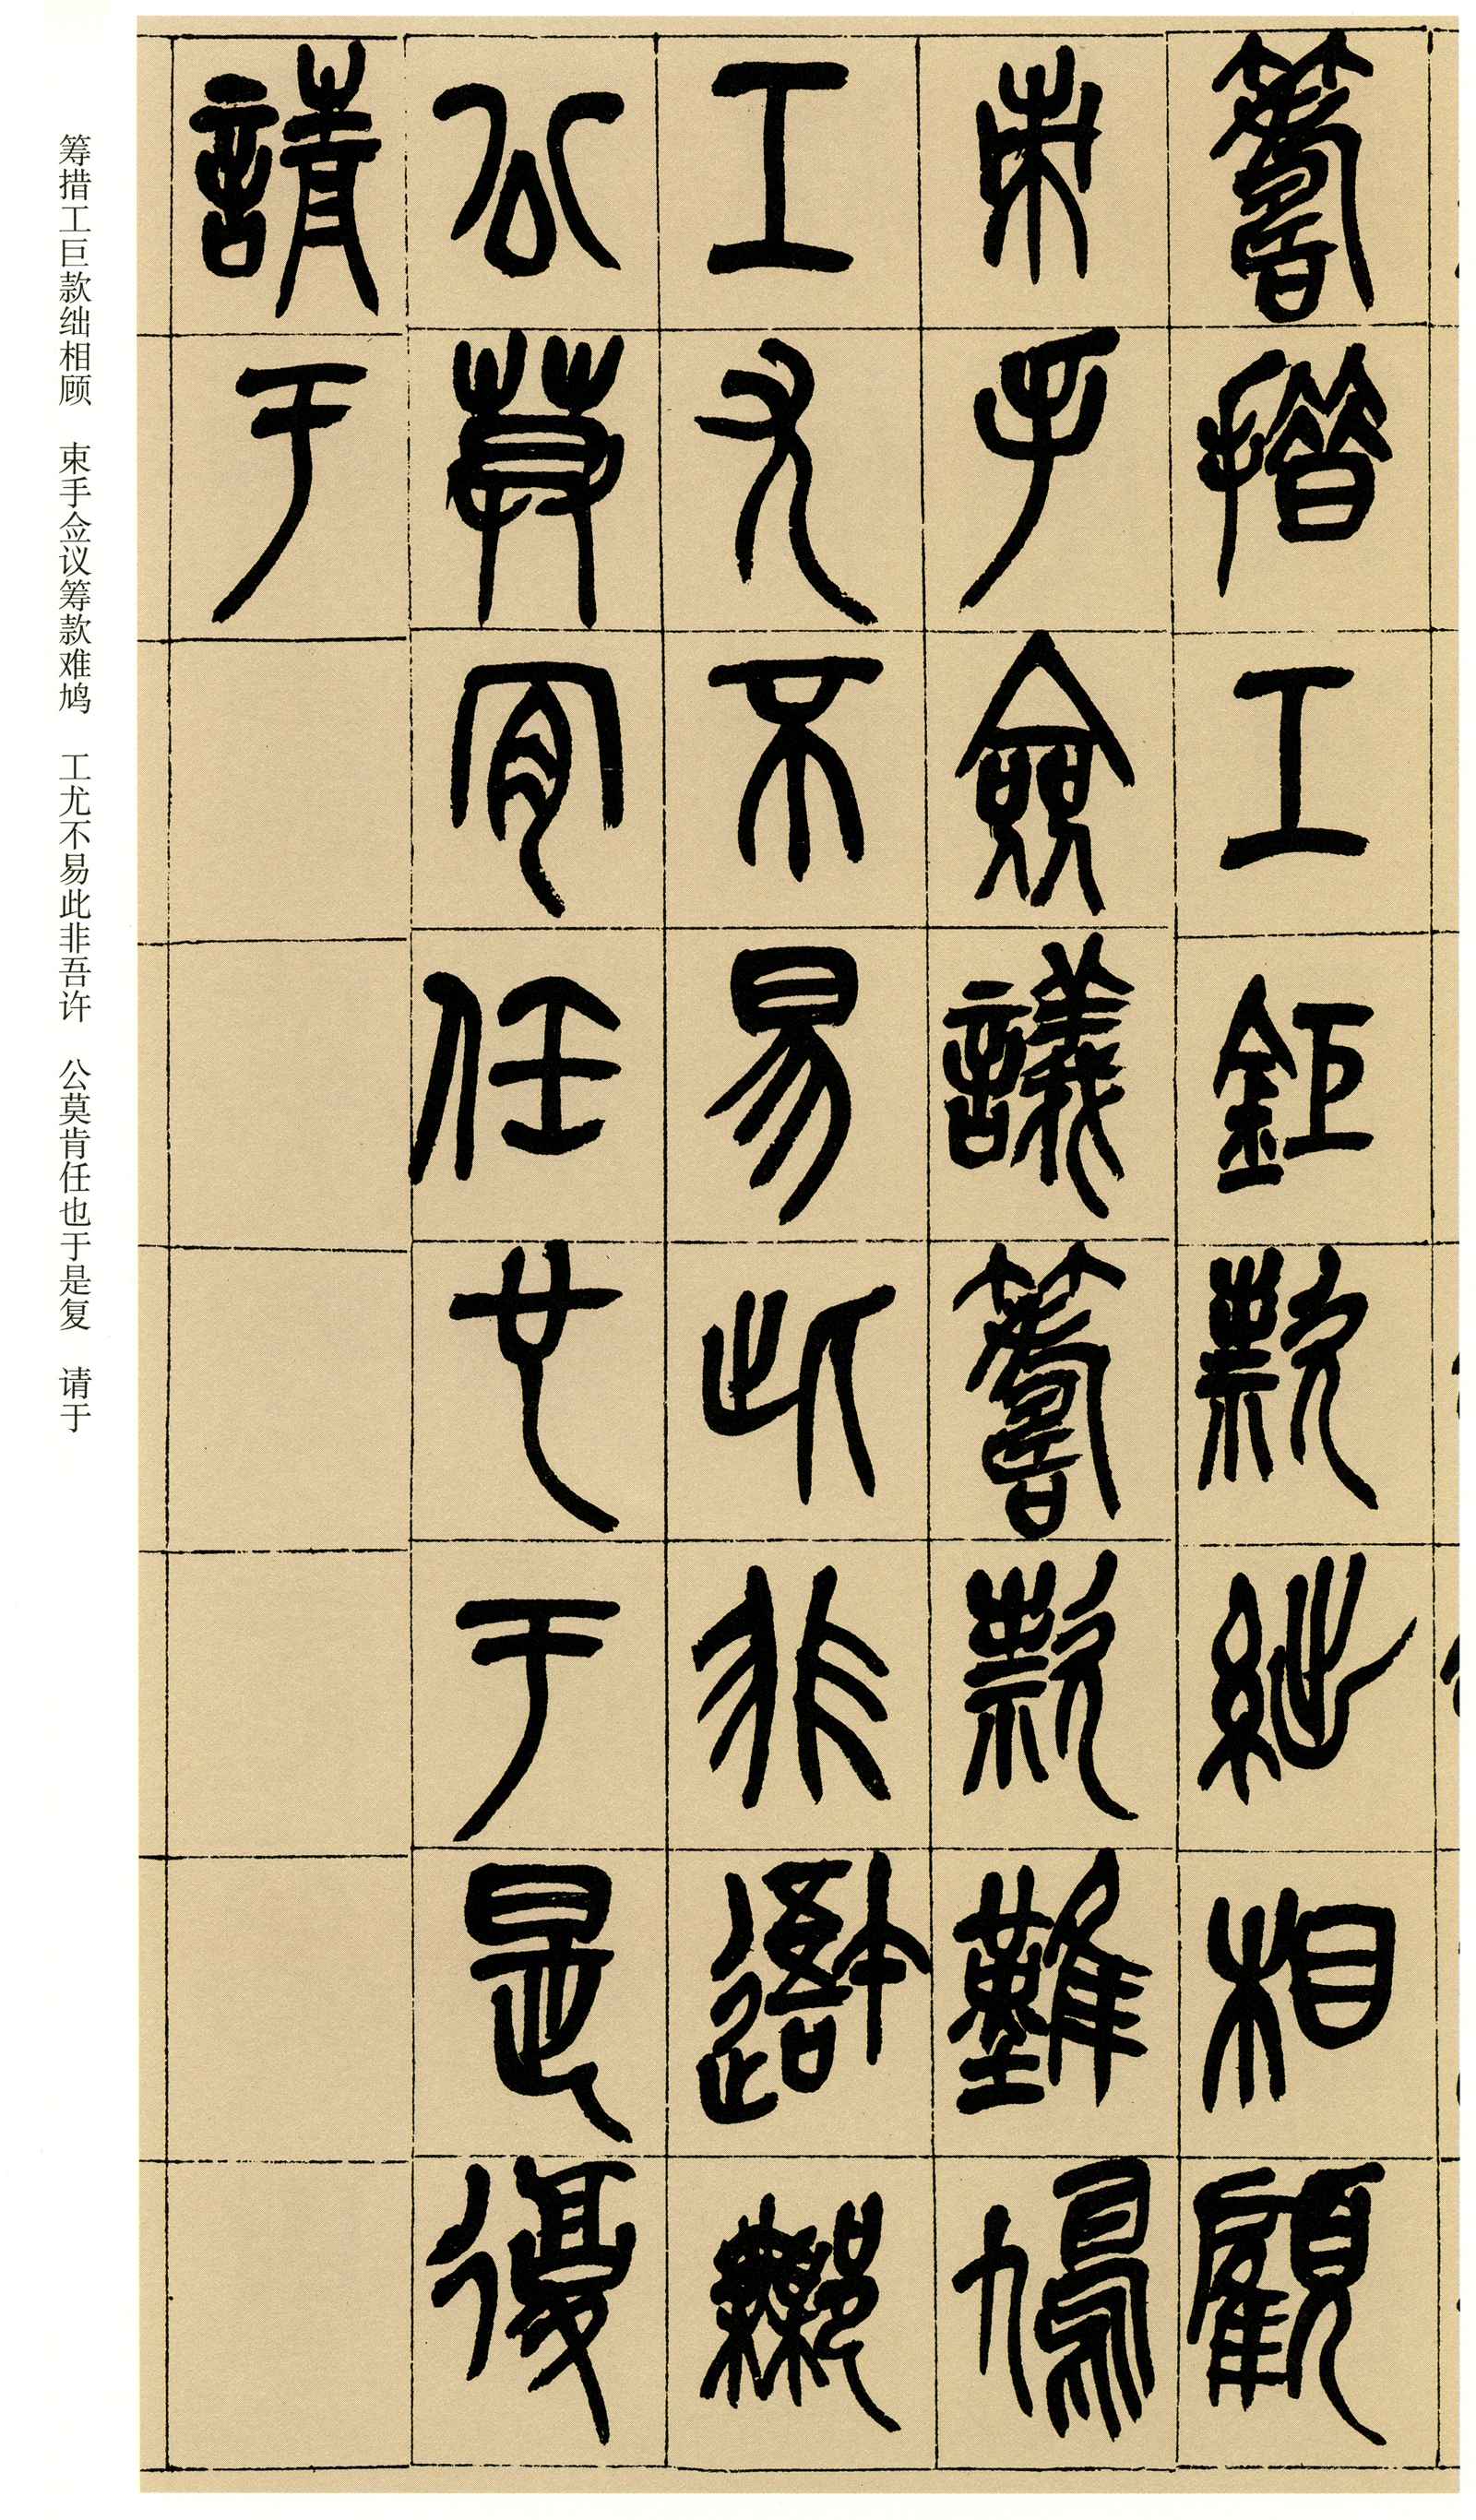 籌措工鉅款絀相顧
束手僉議籌款難鳩
工尤不易此非衙鄦
公莫肎任也于是復
請于
筹措工巨款绌相顾　束手佥议筹款难鸠　工尤不易此非吾许　公莫肯任也于是复　请于